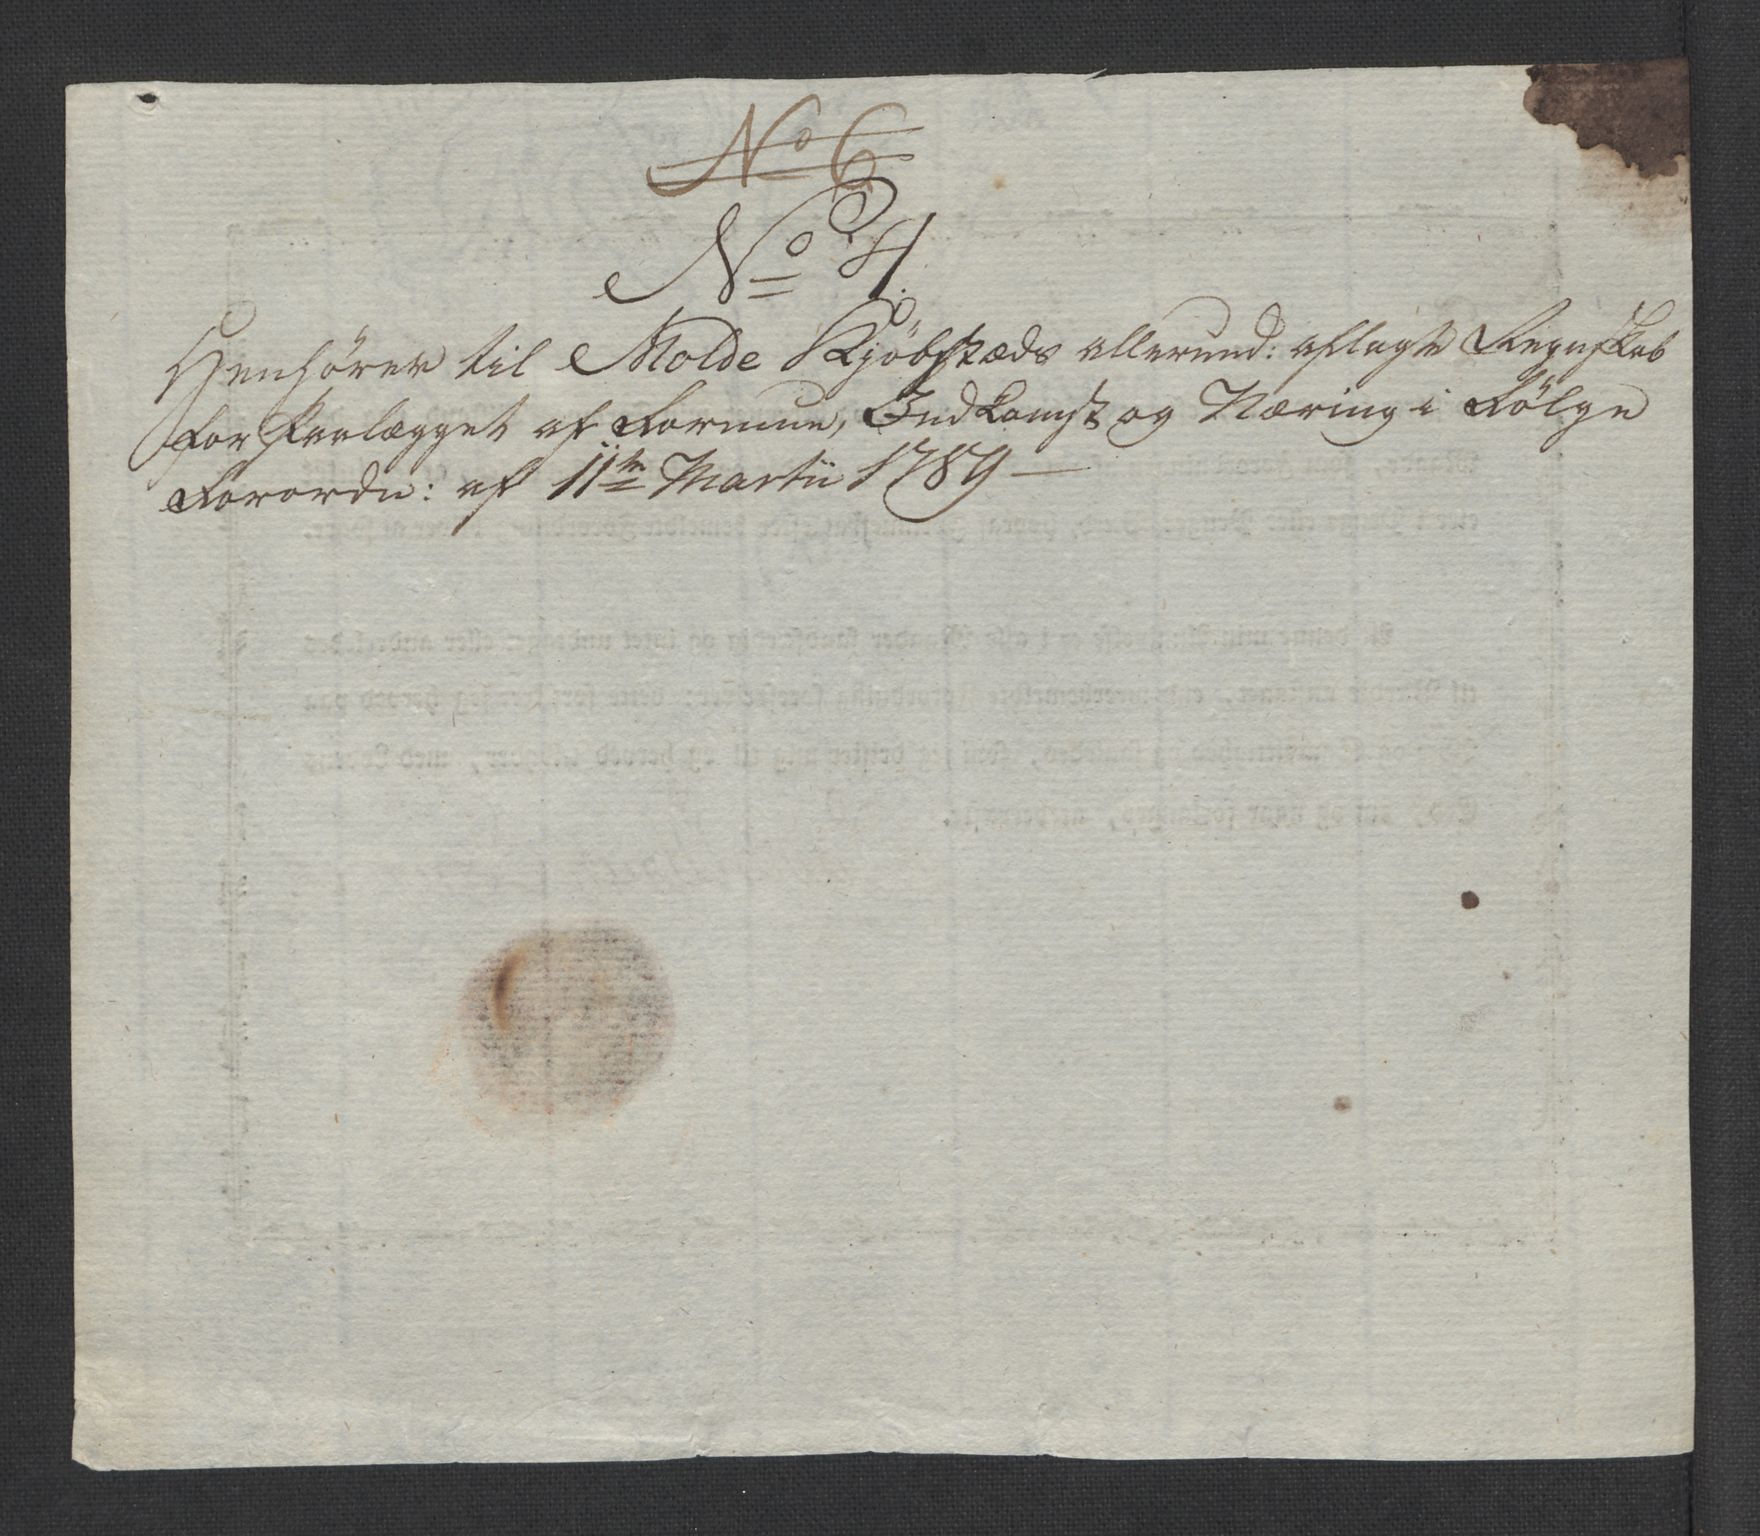 No 6
No 4.
Henhører til Molde Kjøbstæds allerund: aflagte Regnskab
for Paalægget af Formue, Indkomst og Næring i Følge
Forordn: af 11te Martii 1789 —